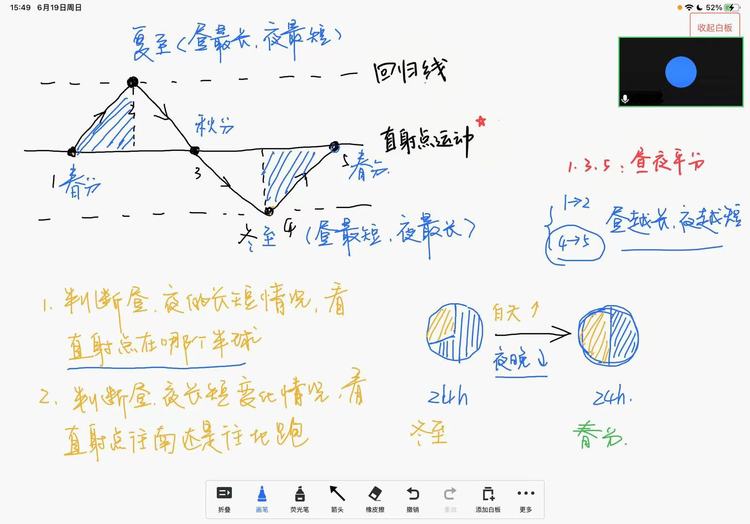 15:49 6月19日周日
52%
收起白板
夏至(昼最长,夜最短)
回归线
秋分
直射点运动
1 春分
3
5 春分
冬至 4 (昼最短,夜最长)
1.3.5:昼夜平分
1→2
4→5
昼越长,夜越短
1. 判断昼.夜的长短情况,看
直射点在哪个半球
2. 判断昼.夜长短变化情况,看
直射点往南还是往北跑
白天↑
夜晚↓
24h
24h.
冬至
春分.
折叠
画笔
荧光笔
箭头
橡皮擦
撤销
重做
添加白板
更多